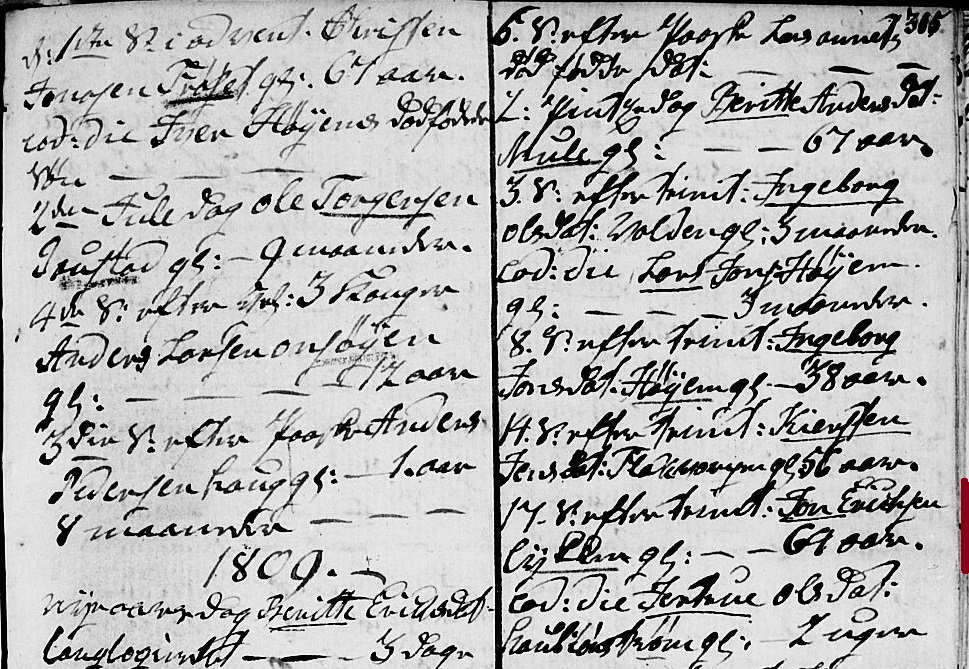 d: 1ste S: i advent. Christen
Jonasen gl: 67 aar.
eod: die Iver Høyens dødfødde
Søn — — —
2den Juledag Ole Torgersen
Ioustad gl: — 9 maaneder.
4de S: efter Hel: 3 Konger
Anders Larsen Høÿen
gl: — — — 12 aar
3die S: efter Paaske Anders
Pedersen Haug gl: — 1. aar
8 maaneder — — —
1809. —
nyeaarsdag Beritte Erichsdat
— — 3 dage
305
6. S: efter Paaske Lars
død fødde dat: — — —
2: Pintzedag Beritte Andersdat:
Mule gl: — — 67 aar.
3. S: efter trinit: Ingeborg
olsdat: Volden gl: 3 maaneder.
Eod: die Lars Jons: Høÿem
gl: — — — 3 maaneder.
8. S: efter trinit: Ingeborg
Jonsdat. Høÿem gl. — 38 aar.
14. S: efter trinit: Kiersten
Jensdat: gl 56 aar.
17. S: efter trinit: Jon Erichsen
gl: — — 69 aar.
Eod: die Jertrue olsdat:
gl: 2 uger